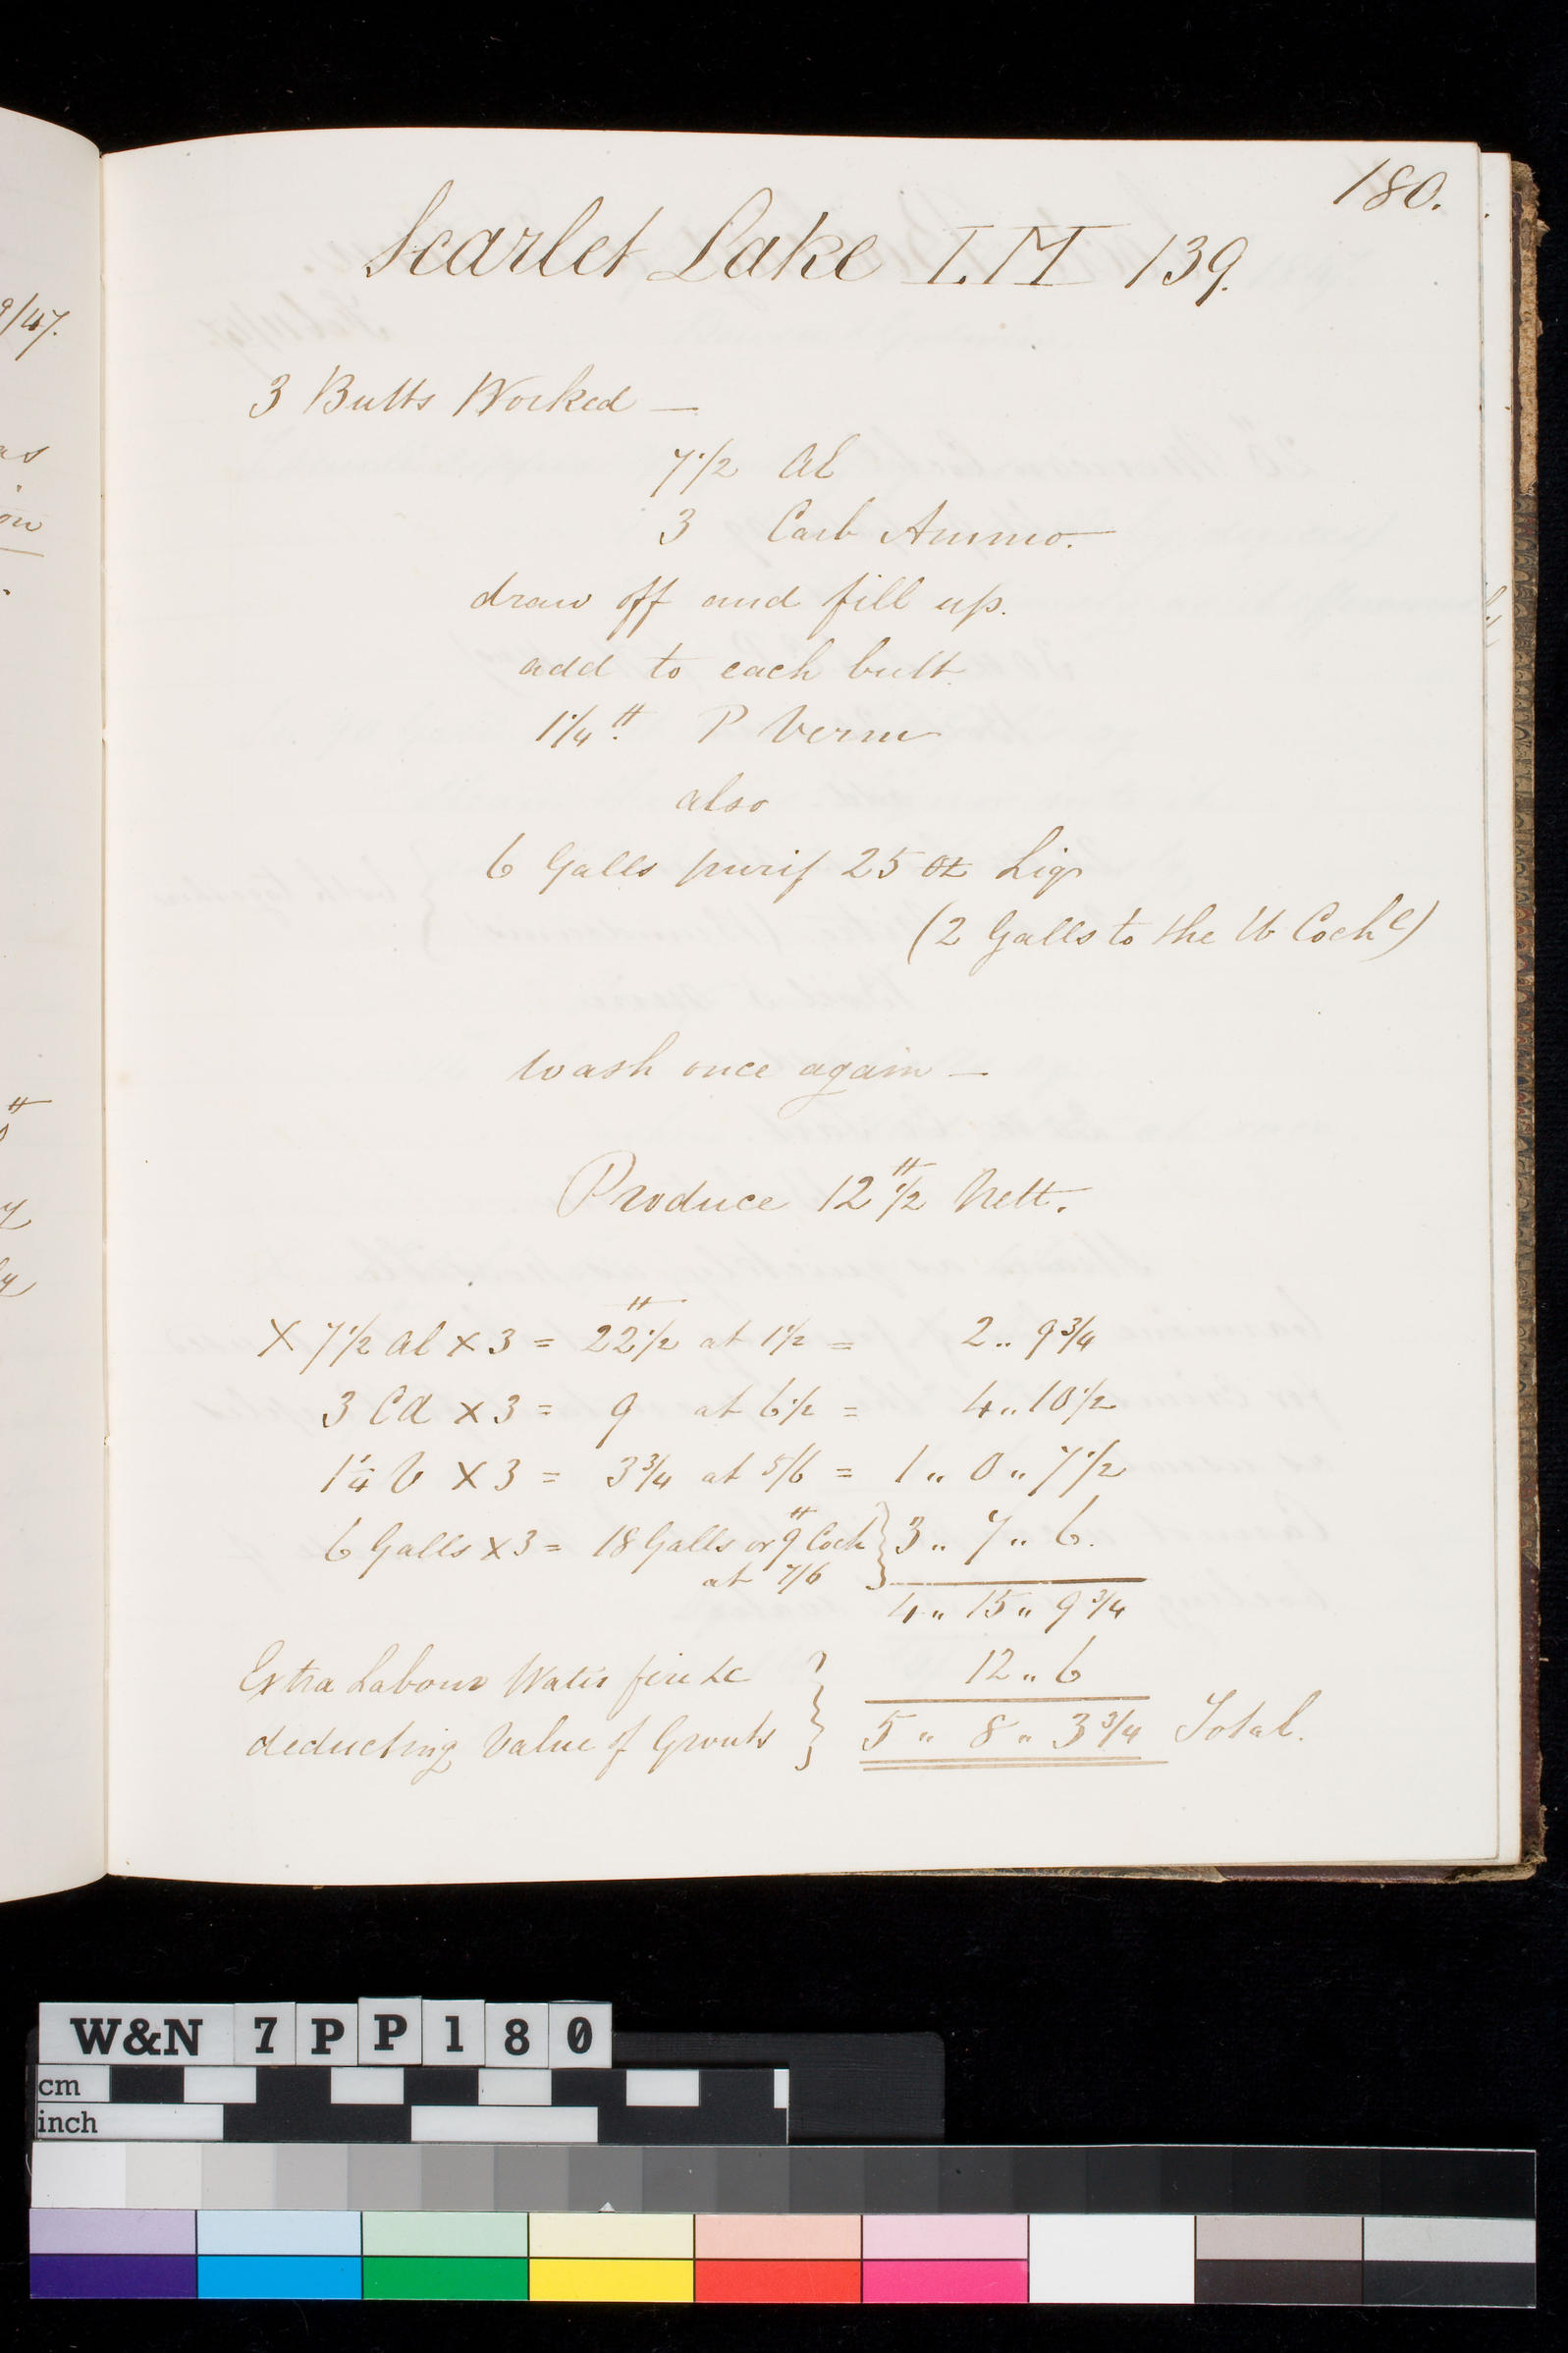 180.
Scarlet Lake I.M 139.
3 Butts Worked —
7 1/2 Al
3 Carb Ammo.
draw off and fill up.
add to each butt
1 1/4 lb P Verm
also
6 Galls purif 25 oz Liqr
(2 Galls to the lb Cochl)
wash once again —
Produce 12 lb 1/2 Nett.
X 7 1/2 Al x 3 = 22 1/2 lb at 1 1/2 = 2 .. 9 3/4
3 CA x 3 = 9 at 6 1/2 = 4 .. 10 1/2
1 1/4 V x 3 = 3 3/4 at 5/6 = 1 .. 0 .. 7 1/2
6 Galls x 3 = 18 Galls or 9 lb Coch } 3 .. 7 .. 6.
at 7/6
4 .. 15 .. 9 3/4
Extra Labour Water fire &c } 12 .. 6
deducting Value of Grouts 5 .. 8 .. 3 3/4 Total.
9/47.
as
on
W&N 7PP180
cm
inch